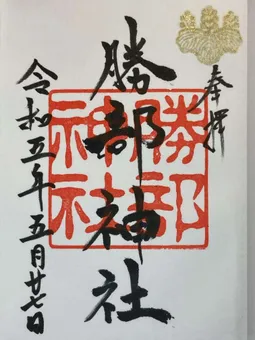 奉拝
勝部神社
勝部
神社
令和五年五月廿七日